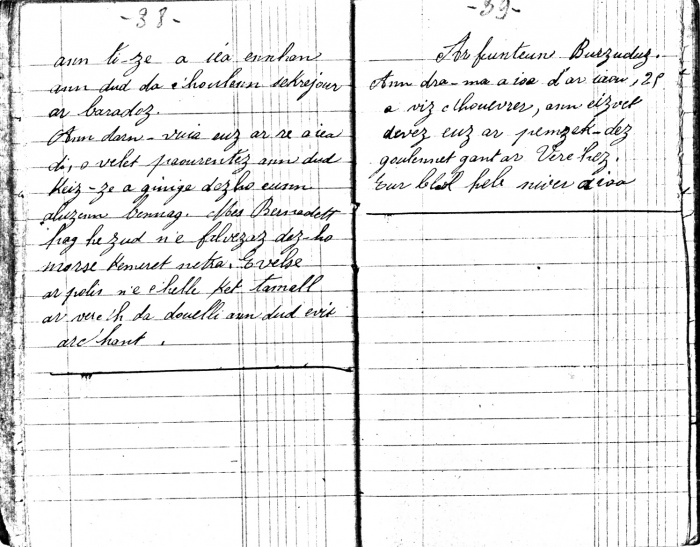 -38-
ann ti-ze a iéa ennhan
ann dud da c'houlenn sekrejour
ar baradoz.
Ann darn-vuia euz ar re a iea
di, o velet paourentez ann dud
keiz-ze a ginige dezho eunn
aluzenn bennag. Mes Bernadett
hag he zud n'e falvezaz dez-ho
morse kemeret netra. Evelse
ar polis n'e c'helle ket tamall
ar verc'h da douelli ann dud evit
arc'hant.
-39-
Ar feunteun Burzuduz.
Ann dra-ma a ioa d'ar iaou, 25
a viz c'houevrer, ann eizvet
devez euz ar pemzek-dez
goulennet gant ar Verc'hez.
Eur pehe niver a ioa